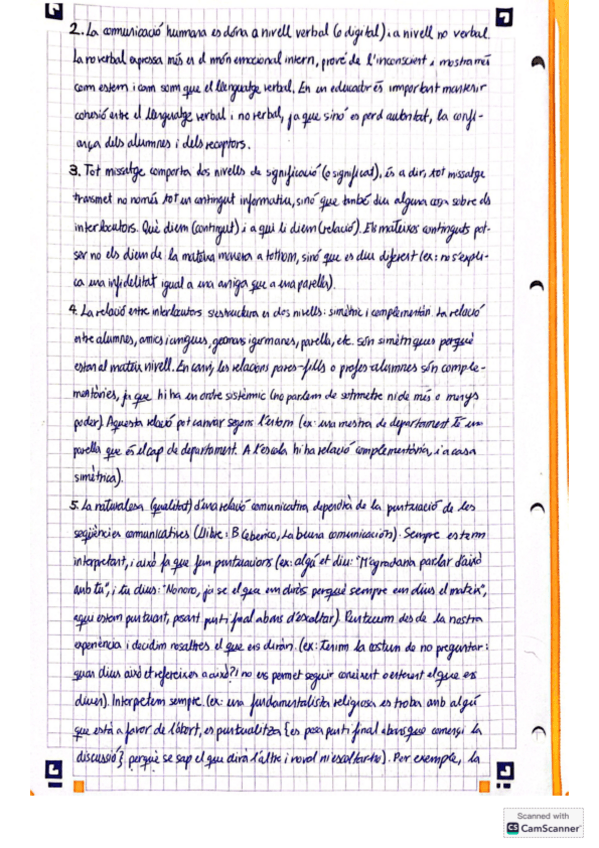 2. La comunicació humana es dóna a nivell verbal (o digital) i a nivell no verbal.
La no verbal expressa més es el món emocional intern, prové de l'inconscient i mostra més
com estem i com som que el llenguatge verbal. En un educador és important mantenir
cohesió entre el llenguatge verbal i no verbal, ja que sinó es perd autoritat, la confi-
ança dels alumnes i dels receptors.
3. Tot missatge comporta dos nivells de significació (o significat), és a dir, tot missatge
transmet no només tot un contingut informatiu, sinó que també diu alguna cosa sobre els
interlocutors. Què diem (contingut) i a qui li diem (relació). Els mateixos continguts pot-
ser no els diem de la mateixa manera a tothom, sinó que es diu diferent (ex: no s'expli-
ca una infidelitat igual a una amiga que a una parella).
4. La relació entre interlocutors s'estructura en dos nivells: simètric i complementari. La relació
entre alumnes, amics i amigues, germans i germanes, parella, etc. són simètriques perquè
estan al mateix nivell. En canvi, les relacions pares-fills o profes-alumnes són comple-
mentàries, ja que hi ha un ordre sistèmic (no parlem de sotmetre ni de més o menys
poder). Aquesta relació pot canviar segons l'entorn (ex: una mestra de departament té una
parella que és el cap de departament. A l'escola hi ha relació complementària, i a casa
simètrica).
5. La naturalesa (qualitat) d'una relació comunicativa dependrà de la puntuació de les
seqüències comunicatives (Llibre: B Ceberico, La buena comunicación). Sempre estem
interpretant, i això fa que fem puntuacions (ex: algú et diu: "M'agradaria parlar d'això
amb tu", i tu dius: "No no no, ja se el que em diràs perquè sempre em dius el mateix",
aquí estem puntuant, posant punt i final abans d'escoltar). Puntuem des de la nostra
experiència i decidim nosaltres el que ens diran. (ex: Tenim la costum de no preguntar:
quan dius això et refereixes a això? i no ens permet seguir coneixent o entenent el que es
diuen). Interpretem sempre. (ex: una fundamentalista religiosa es troba amb algú
que està a favor de l'abort, es puntualitza {es posa punt i final abans que comenci la
discussió} perquè se sap el que dirà l'altre i no vol ni escoltar-ho). Per exemple, la
Scanned with
CS CamScanner